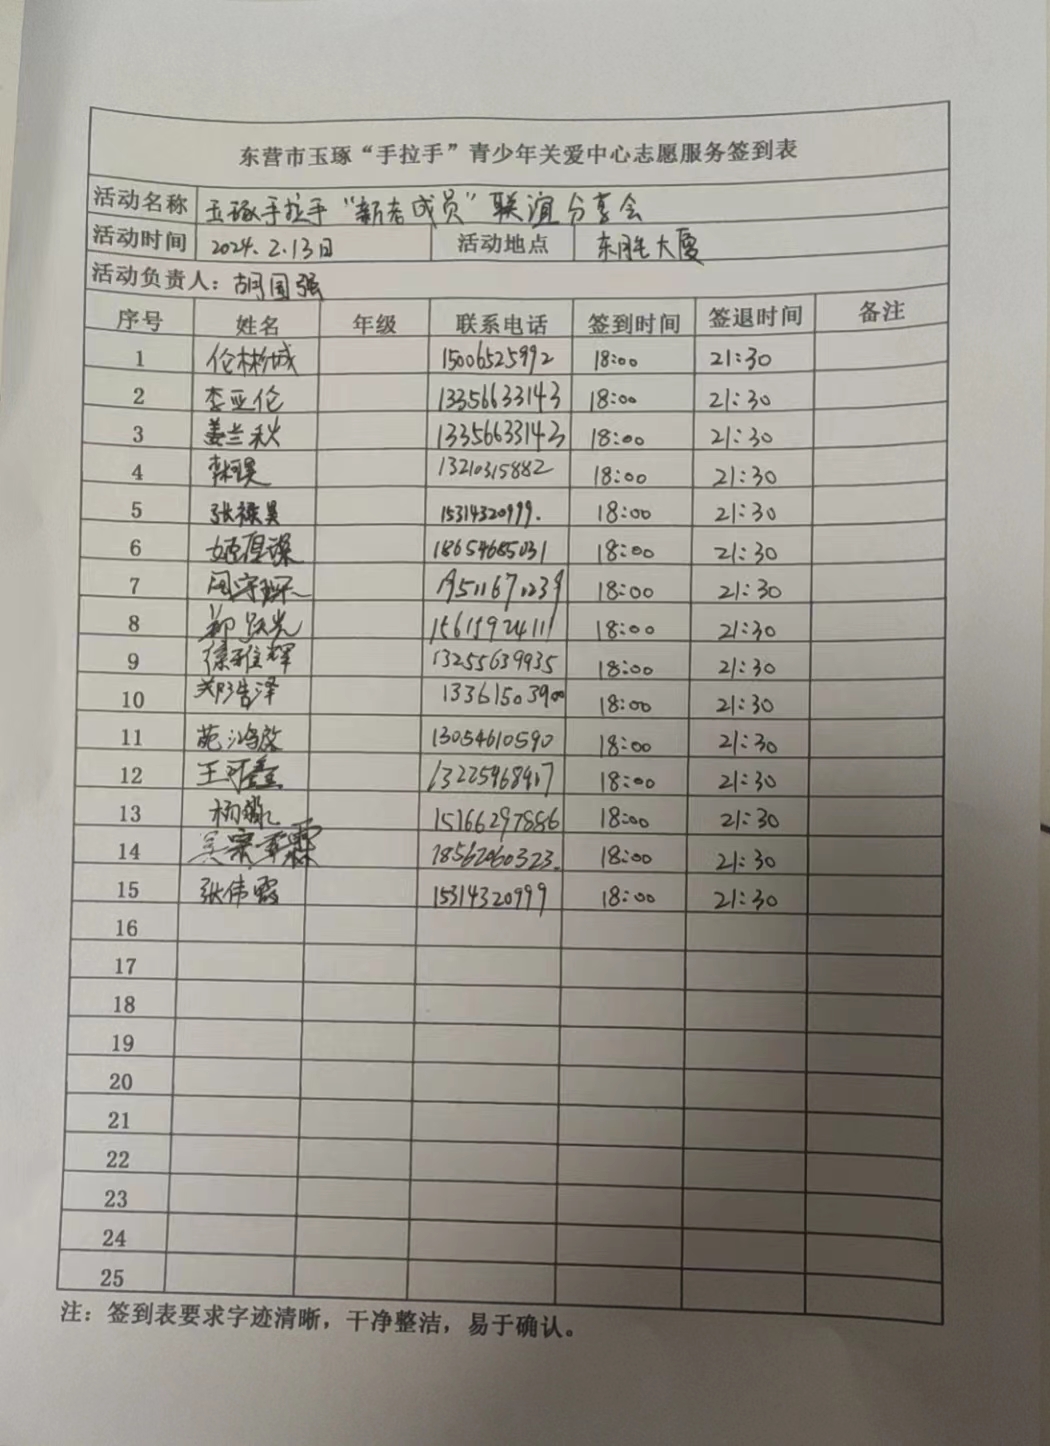 东营市玉琢“手拉手”青少年关爱中心志愿服务签到表
活动名称 玉琢手拉手“新老成员”联谊分享会
活动时间 2024.2.13日 活动地点 东胜大厦
活动负责人：胡国强
序号 姓名 年级 联系电话 签到时间 签退时间 备注
1 伦彬城 15006525992 18:00 21:30
2 李亚伦 13356633143 18:00 21:30
3 姜兰秋 13356633143 18:00 21:30
4 13210315882 18:00 21:30
5 张禄昊 15314320999. 18:00 21:30
6 18654685031 18:00 21:30
7 周守琛 19511671239 18:00 21:30
8 郭跃光 15615924111 18:00 21:30
9 徐雅辉 13255639935 18:00 21:30
10 郑浩泽 13361503900 18:00 21:30
11 苑鸿啟 13054610590 18:00 21:30
12 王珂鑫 18:00 21:30
13 杨 15166297886 18:00 21:30
14 吴宗霖 18562060323. 18:00 21:30
15 张伟霞 15314320999 18:00 21:30
16
17
18
19
20
21
22
23
24
25
注：签到表要求字迹清晰，干净整洁，易于确认。